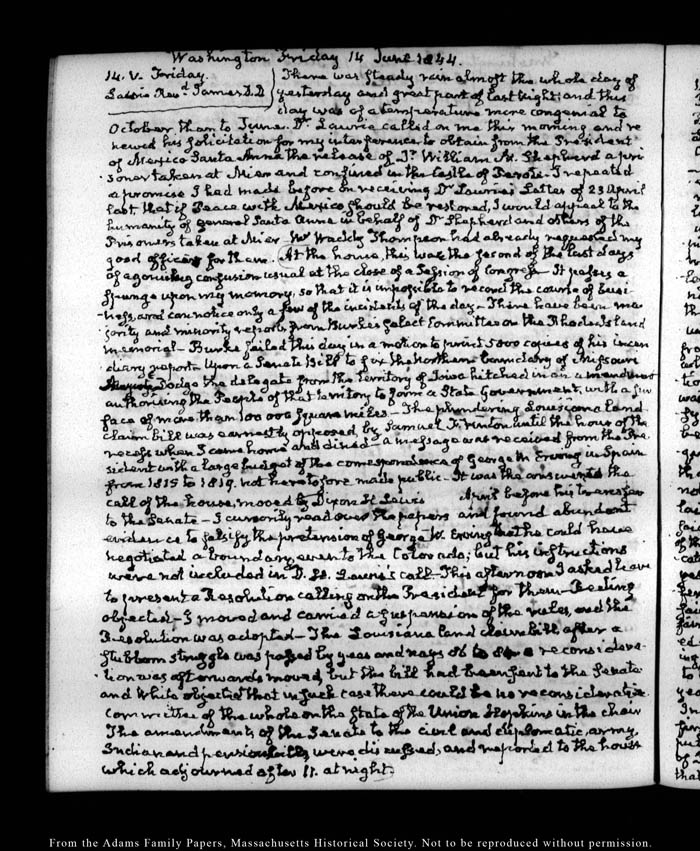 Washington Friday 14 June 1844.
14. V. Friday.
Laurie Revd. James D.D
There was steady rain almost the whole day of
yesterday and great part of last night; and this
day was of a temperature more congenial to
October than to June. Dr. Laurie called on me this morning and re
newed his solicitation for my interference to obtain from the President
of Mexico Santa Anna the release of Dr. William M. Shepherd a pri
soner taken at Mier and confined in the Castle of Perote. I repeated
a promise I had made before on receiving Dr Laurie's Letter of 23 April
last, that if Peace with Mexico should be restored, I would appeal to the
humanity of General Santa Anna in behalf of Dr Shepherd and others of the
Prisoners taken at Mier. Mr Waddy Thompson had already requested my
good offices for them. At the house, this was the second of the last days
of agonising confusion usual at the close of a Session of Congress. It passes a
sponge upon my memory, so that it is impossible to record the course of busi
-ness, and can notice only a few of the incidents of the day. There have been ma
jority and minority reports from Burke's select Committee on the Rhode-Island
memorial. Burke failed this day in a motion to print 5000 copies of his incen
diary report. Upon a Senate Bill to fix the Northern boundary of Missouri
Dodge the delegate from the Territory of Iowa hitched in an amendment
authorising the People of that territory to form a State Government, with a sur
face of more than 100 000 square miles. The plundering Louisiana land-
claim bill was earnestly opposed by Samuel F. Vinton until the hour of the
recess when I came home and dined. a message was received from the Pre
sident with a large budget of the correspondence of George W. Erving in Spain
from 1815 to 1819. not heretofore made public. It was the answer to the
call of the house, moved by Dixon H. Lewis April before his transfer
to the Senate. I cursorily read over the papers and found abundant
evidence to falsify the pretension of George W. Erving that he could have
negotiated a boundary, even to the Colorado; but his instructions
were not included in D. H. Lewis's call. This afternoon I asked leave
to present a Resolution calling on the President for them
objected. I moved and carried a suspension of the rules, and the
Resolution was adopted. The Louisiana land claim bill after a
stubborn struggle was passed by yeas and nays 86 to a reconsidera-
tion was afterwards moved, but the bill had been sent to the Senate
and White objected that in such case there could be no reconsideration
Committee of the whole on the state of the Union Hopkins in the chair
The amendments of the Senate to the civil and diplomatic, army,
Indian and pension bills were discussed, and reported to the house
which adjourned after 11. at night.
From the Adams Family Papers, Massachusetts Historical Society. Not to be reproduced without permission.